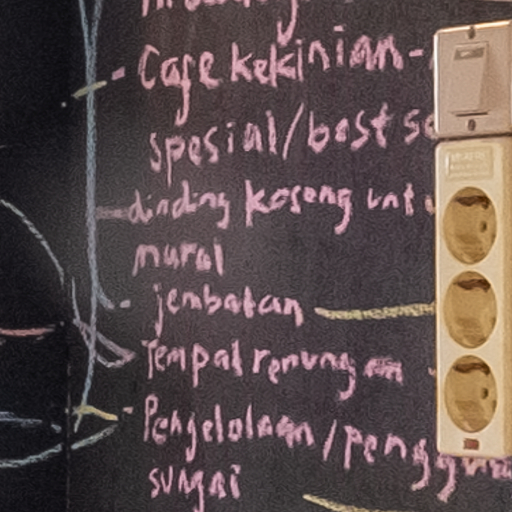 - Cafe kekinian-
spesial/best se
dinding kosong unt
mural
- jembatan
Tempat renungan
- Pengelolaan/penggun
sungai